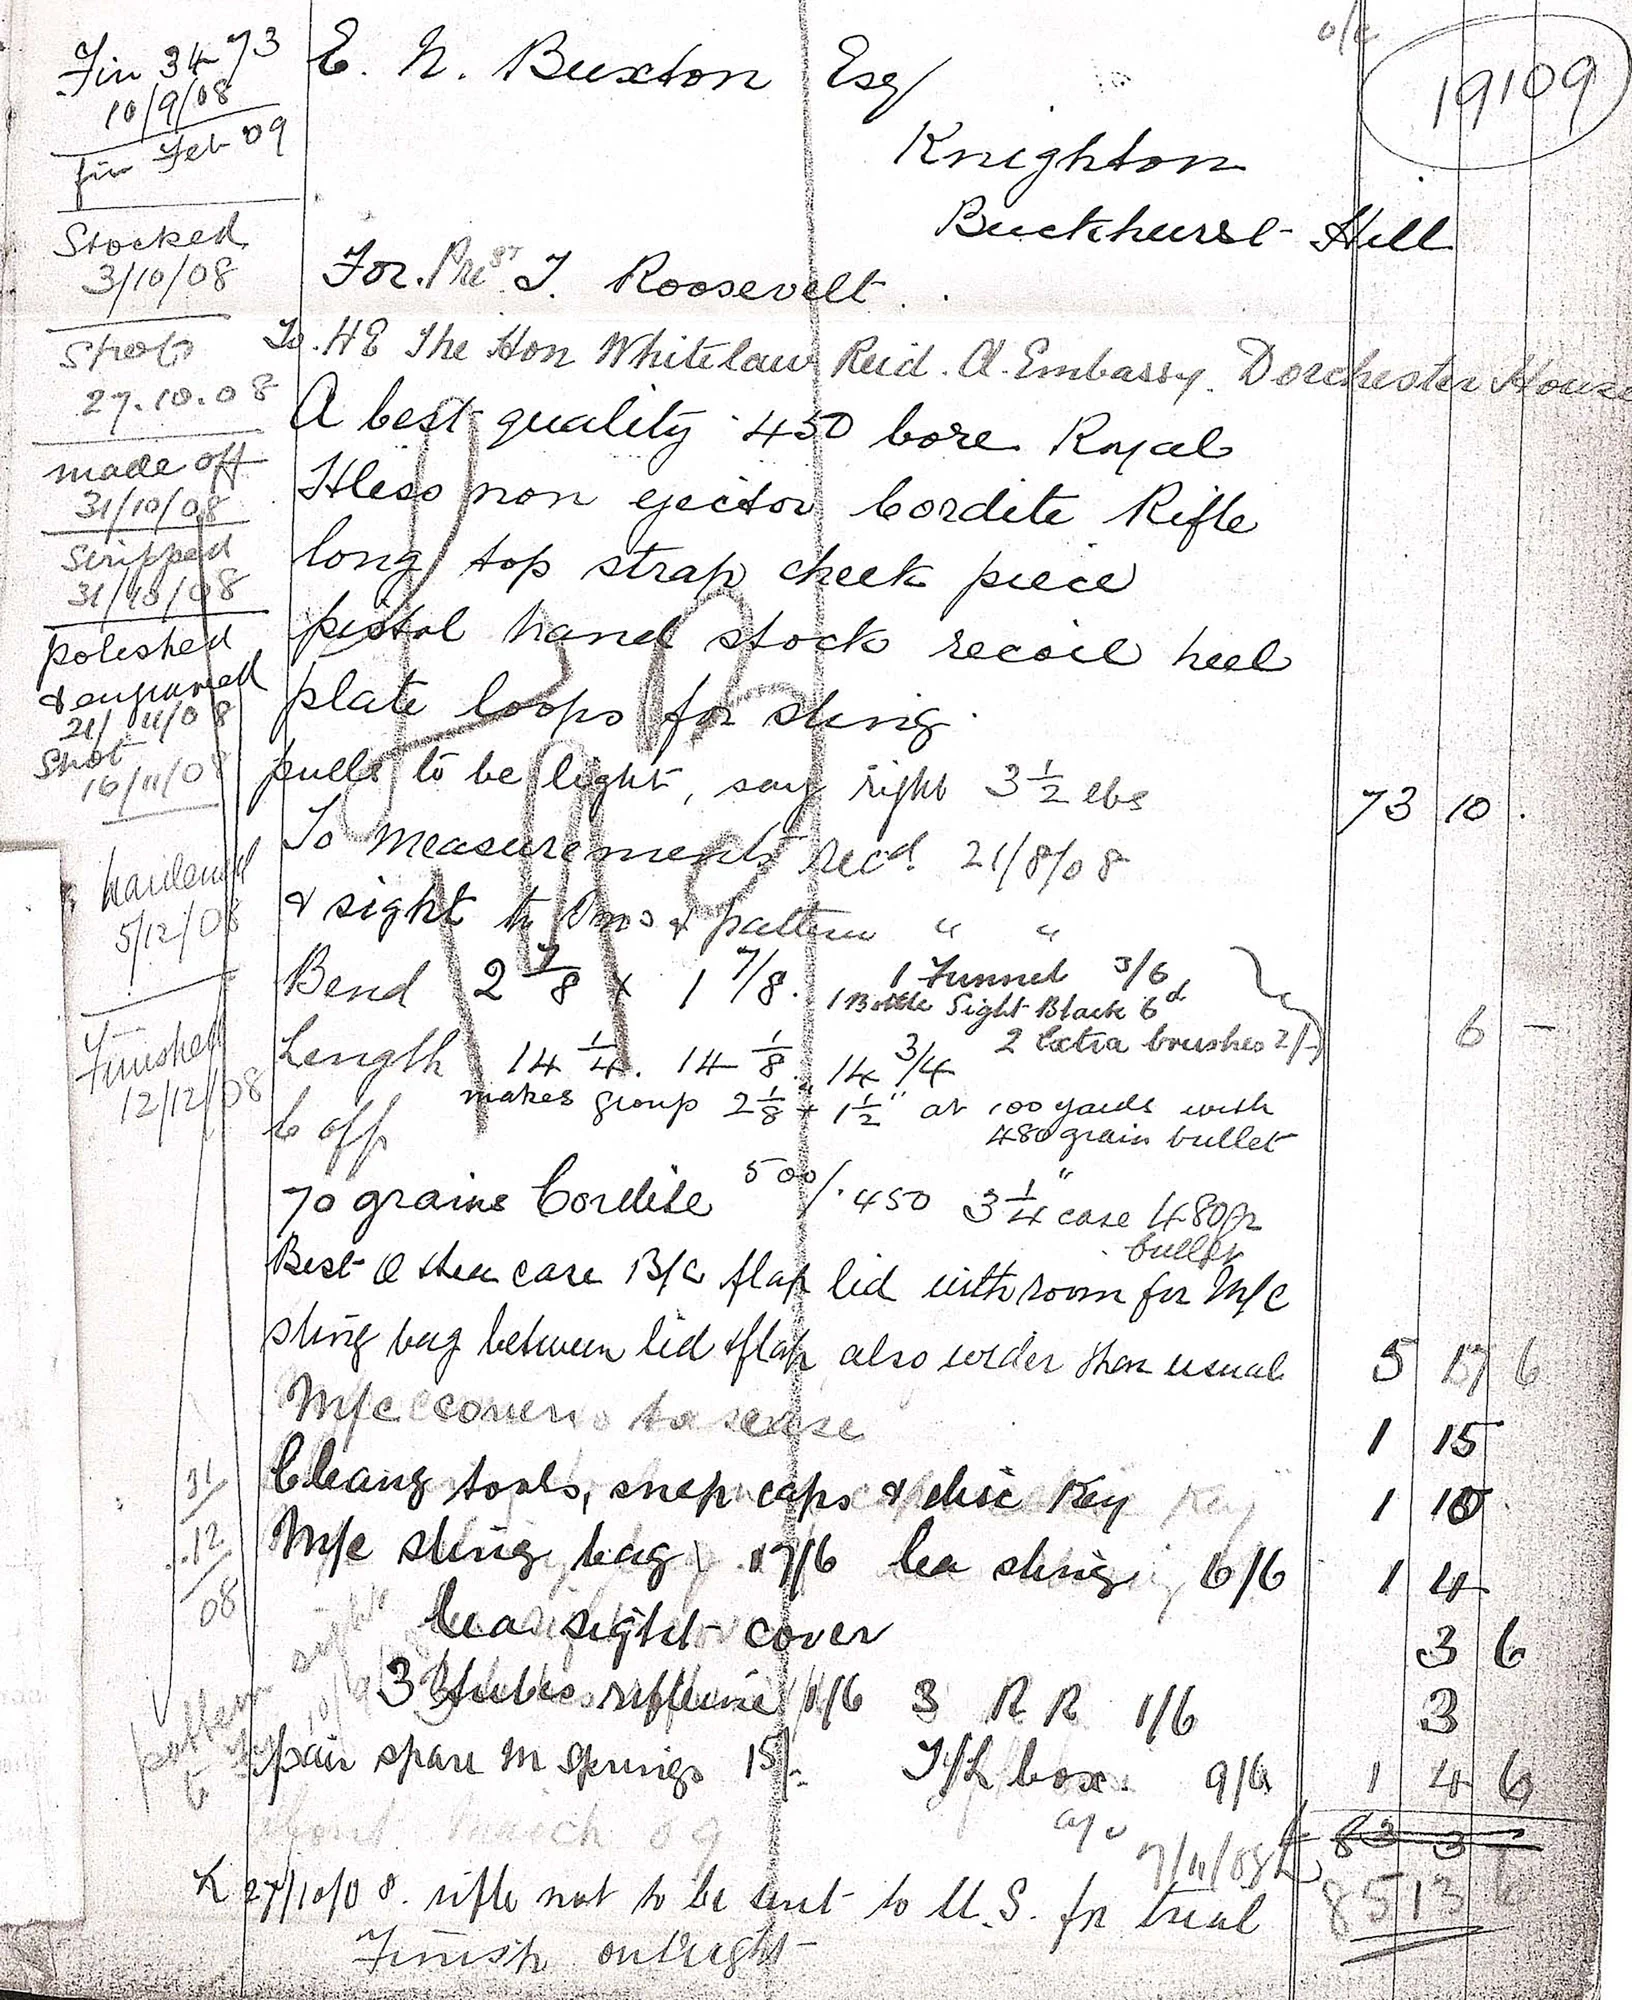 Fin 34 73
10/9/08
fin Feb 09
Stocked
3/10/08
Shot
27.10.08
made off
31/10/08
Stripped
31/10/08
polished
& engraved
21/11/08
Shot
16/11/08
hardened
5/12/08
Finished
12/12/08
31/12/08
o/c
19109
E. N. Buxton Esq
Knighton
Buckhurst Hill
For Prest T. Roosevelt.
To. HE The Hon Whitelaw Reid. A. Embassy. Dorchester House
A best quality .450 bore Royal
Hless non ejector Cordite Rifle
long top strap cheek piece
pistol hand stock recoil heel
plate loops for sling.
pulls to be light, say right 3 1/2 lbs 73 10 .
To measurements recd. 21/8/08
& sight to & pattern " "
Bend 2 7/8 x 1 7/8. 1 Funnel 3/6
1 Bottle Sight Black 6d
2 Extra brushes 2/- 6 -
Length 14 1/4. 14 1/8. 14 3/4
makes group 2 1/8" x 1 1/2" at 100 yards with
480 grain bullet
C off
70 grains Cordite 500/.450 3 1/4" case 480gr
bullet
Best O lea case B/C flap lid with room for M/C
sling bag between lid & flap also wider than usual 5 17 6
M/c cover to case 1 15
Cleang tools, snap caps & disc Key 1 10
M/c sling bag 17/6 lea sling 6/6 1 4
lea sight cover 3 6
3 tubes rifleine 1/6 3 R R 1/6 3
pair spare m springs 15/- T/L box. 9/6 1 4 6
pattern
sight
March 09
7/11/08
83 3
85 13 6
L 27/10/08. rifle not to be sent to U.S. for trial
Finish outright